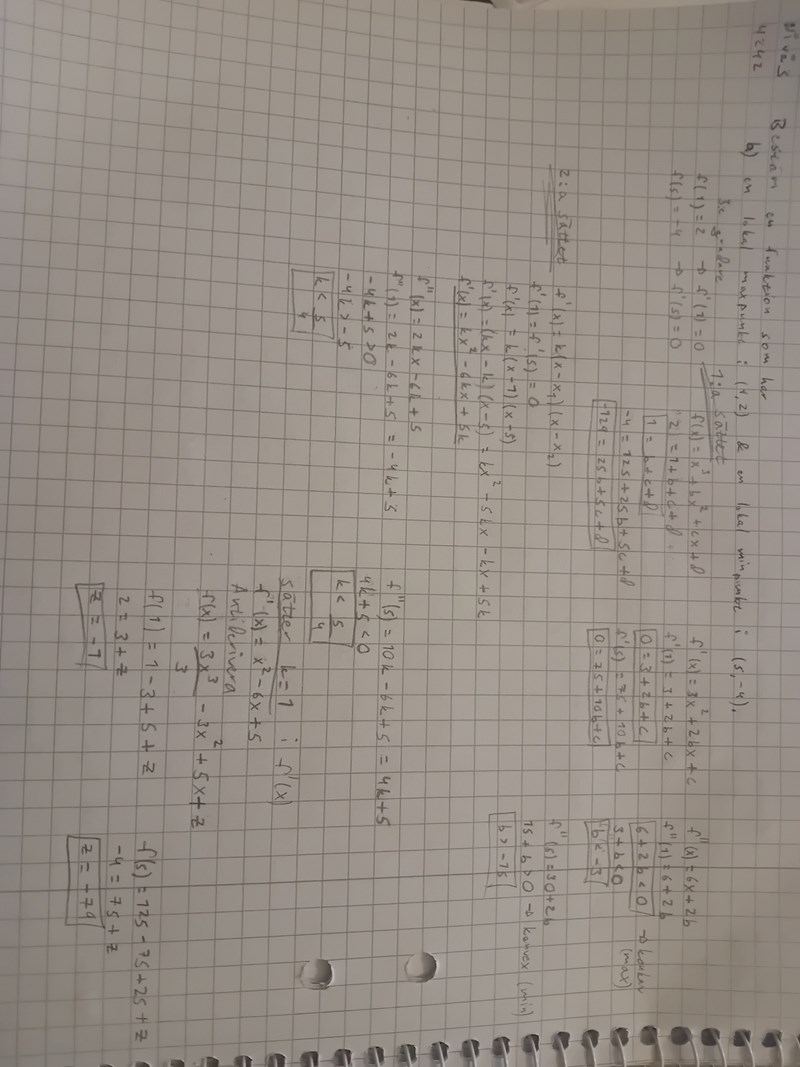 Nivå 3
4242 Bestäm en funktion som har
b) en lokal maxpunkt i (1,2) & en lokal minpunkt i (5,-4).
3e gradare
f(1) = 2 → f'(1) = 0
f(5) = -4 → f'(5) = 0
1:a sättet
f(x) = x³ + bx² + cx + d
2 = 1 + b + c + d
1 = b + c + d
-4 = 125 + 25b + 5c + d
-129 = 25b + 5c + d
f'(x) = 3x² + 2bx + c
f'(1) = 3 + 2b + c
0 = 3 + 2b + c
f'(5) = 75 + 10b + c
0 = 75 + 10b + c
f''(x) = 6x + 2b
f''(1) = 6 + 2b
6 + 2b < 0 → konkav (max)
3 + b < 0
b < -3
f''(5) = 30 + 2b
15 + b > 0 → konvex (min)
b > -15
2:a sättet
f'(x) = k(x - x₁)(x - x₂)
f'(1) = f'(5) = 0
f'(x) = k(x - 1)(x - 5)
f'(x) = (kx - k)(x - 5) = kx² - 5kx - kx + 5k
f'(x) = kx² - 6kx + 5k
f''(x) = 2kx - 6k + 5
f''(1) = 2k - 6k + 5 = -4k + 5
-4k + 5 > 0
-4k > -5
k < 5/4
f''(5) = 10k - 6k + 5 = 4k + 5
4k + 5 < 0
k < 5/4
sätter k = 1 i f'(x)
f'(x) = x² - 6x + 5
Antiderivera
f(x) = 3x³/3 - 3x² + 5x + z
f(1) = 1 - 3 + 5 + z
2 = 3 + z
z = -1
f(5) = 125 - 75 + 25 + z
-4 = 75 + z
z = -79